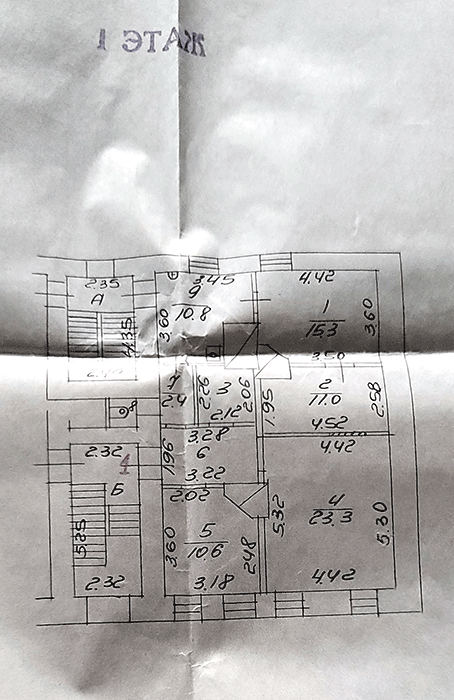 1 ЭТАЖ
2.35
А
4.35
3.45
9
10.8
3.60
4.42
1
15.3
3.60
3.50
7
2.4
2.26
3
2.06
2.12
2
11.0
1.95
2.58
4.52
2.32
1
Б
5.25
2.32
1.96
3.28
6
3.22
2.02
5
10.6
3.60
2.48
3.18
4.42
4
23.3
5.32
5.30
4.42